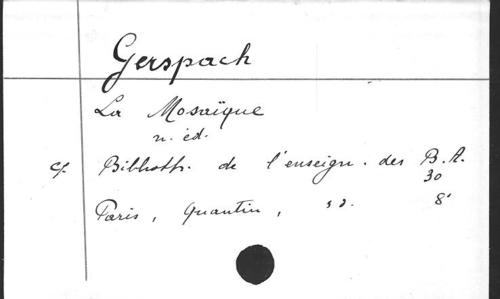 Gerspach
La Mosaïque
n. éd.
cf. Biblioth. de l'enseign. des B.A.
30
Paris, Quantin, s.d. 8°